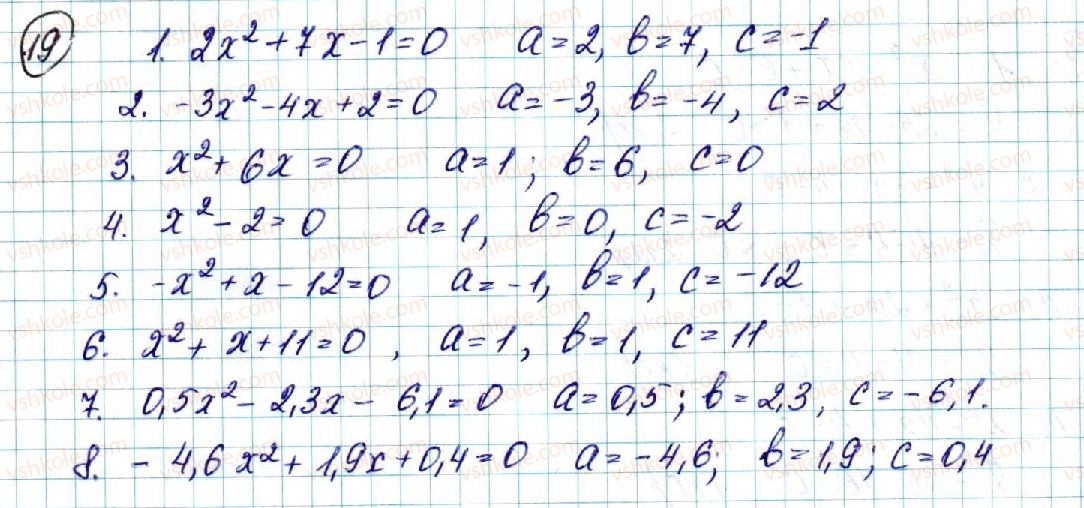 19
1. 2x² + 7x − 1 = 0 a = 2, b = 7, c = −1
2. −3x² − 4x + 2 = 0 a = −3, b = −4, c = 2
3. x² + 6x = 0 a = 1; b = 6, c = 0
4. x² − 2 = 0 a = 1, b = 0, c = −2
5. −x² + x − 12 = 0 a = −1, b = 1, c = −12
6. x² + x + 11 = 0, a = 1, b = 1, c = 11
7. 0,5x² − 2,3x − 6,1 = 0 a = 0,5; b = 2,3, c = −6,1.
8. − 4,6x² + 1,9x + 0,4 = 0 a = −4,6; b = 1,9; c = 0,4
vshkole.com